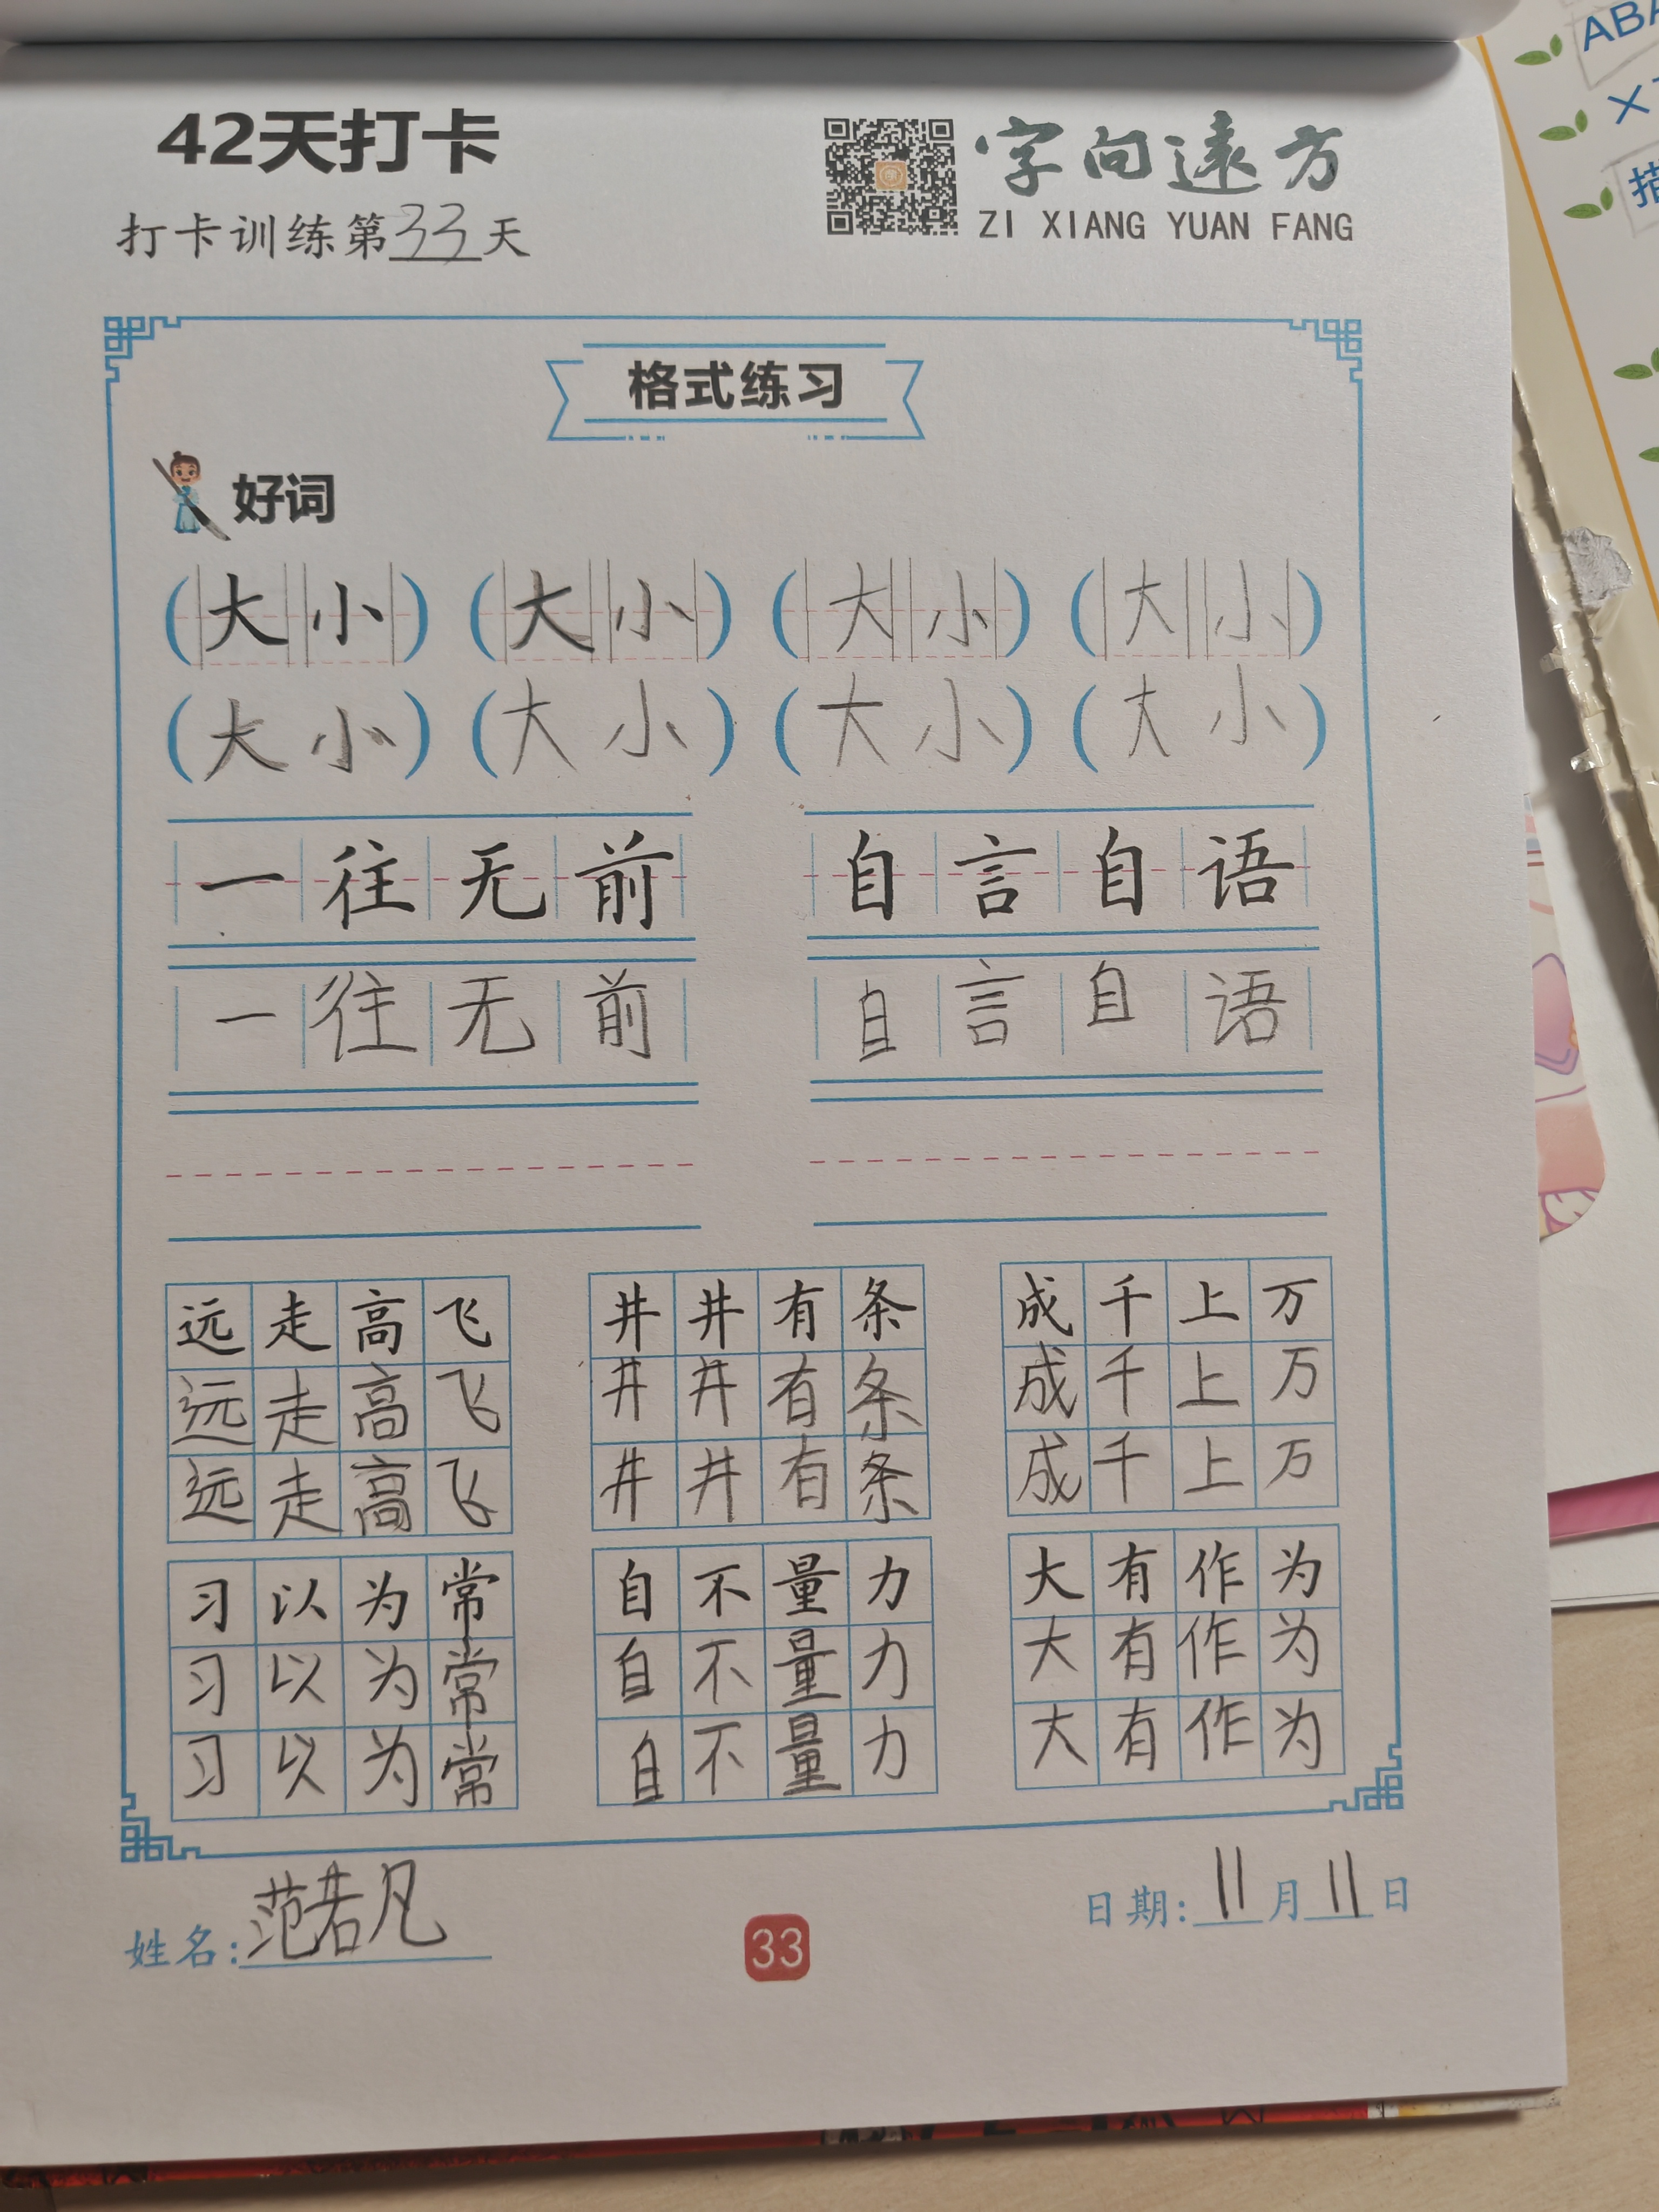 42天打卡
字向遠方
ZI XIANG YUAN FANG
打卡训练第33天
格式练习
好词
(大小) (大小) (大小) (大小)
(大小) (大小) (大小) (大小)
一往无前 自言自语
一往无前 自言自语
远走高飞 井井有条 成千上万
远走高飞 井井有条 成千上万
远走高飞 井井有条 成千上万
习以为常 自不量力 大有作为
习以为常 自不量力 大有作为
习以为常 自不量力 大有作为
姓名:范若凡
33
日期:11月11日